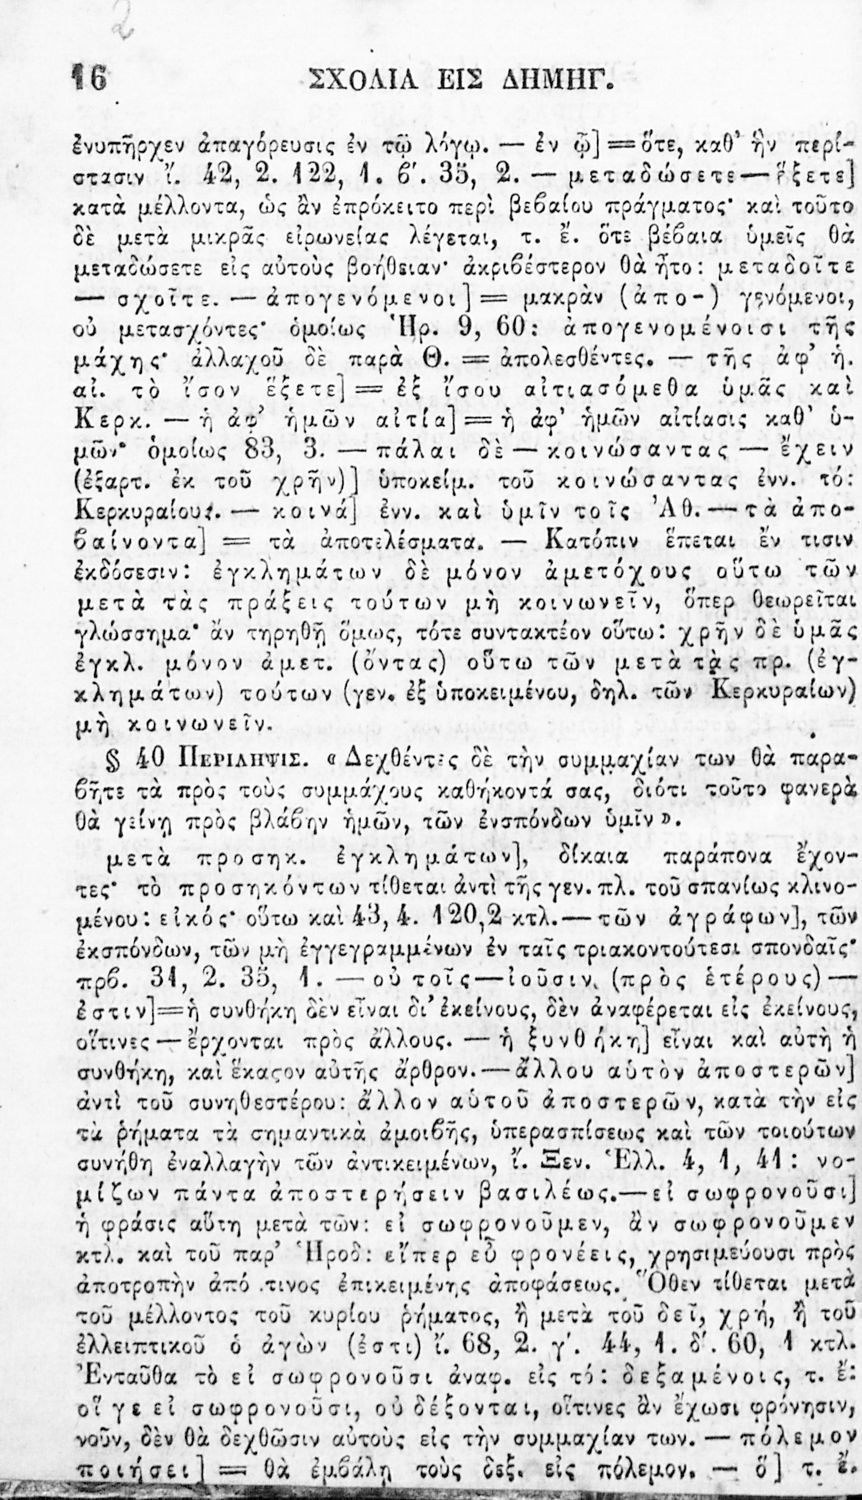 2
16 ΣΧΟΛΙΑ ΕΙΣ ΔΗΜΗΓ.
ἐνυπῆρχεν ἀπαγόρευσις ἐν τῷ λόγῳ. — ἐν ᾧ] = ὅτε, καθ' ἣν περί-
στασιν ἴ. 42, 2. 122, 1. β'. 35, 2. — μεταδώσετε — ἕξετε]
κατὰ μέλλοντα, ὡς ἂν ἐπρόκειτο περὶ βεβαίου πράγματος· καὶ τοῦτο
δὲ μετὰ μικρᾶς εἰρωνείας λέγεται, τ. ἔ. ὅτε βέβαια ὑμεῖς θὰ
μεταδώσετε εἰς αὐτοὺς βοήθειαν· ἀκριβέστερον θὰ ἦτο: μεταδοῖτε
— σχοῖτε. — ἀπογενόμενοι] = μακρὰν (ἀπο-) γενόμενοι,
οὐ μετασχόντες· ὁμοίως Ἡρ. 9, 60: ἀπογενομένοισι τῆς
μάχης· ἀλλαχοῦ δὲ παρὰ Θ. = ἀπολεσθέντες. — τῆς ἀφ' ἡ.
αἰ. τὸ ἴσον ἕξετε] = ἐξ ἴσου αἰτιασόμεθα ὑμᾶς καὶ
Κερκ. — ἡ ἀφ' ἡμῶν αἰτία] = ἡ ἀφ' ἡμῶν αἰτίασις καθ' ὑ-
μῶν· ὁμοίως 83, 3. — πάλαι δὲ — κοινώσαντας — ἔχειν
(ἐξαρτ. ἐκ τοῦ χρῆν)] ὑποκείμ. τοῦ κοινώσαντας ἐνν. τό:
Κερκυραίους. — κοινά] ἐνν. καὶ ὑμῖν τοῖς Ἀθ. — τὰ ἀπο-
βαίνοντα] = τὰ ἀποτελέσματα. — Κατόπιν ἕπεται ἔν τισιν
ἐκδόσεσιν: ἐγκλημάτων δὲ μόνον ἀμετόχους οὕτω τῶν
μετὰ τὰς πράξεις τούτων μὴ κοινωνεῖν, ὅπερ θεωρεῖται
γλώσσημα· ἂν τηρηθῇ ὅμως, τότε συντακτέον οὕτω: χρῆν δὲ ὑμᾶς
ἐγκλ. μόνον ἀμετ. (ὄντας) οὕτω τῶν μετὰ τὰς πρ. (ἐγ-
κλημάτων) τούτων (γεν. ἐξ ὑποκειμένου, δηλ. τῶν Κερκυραίων)
μὴ κοινωνεῖν.
§ 40 ΠΕΡΙΛΗΨΙΣ. «Δεχθέντες δὲ τὴν συμμαχίαν των θὰ παρα-
βῆτε τὰ πρὸς τοὺς συμμάχους καθήκοντά σας, διότι τοῦτο φανερὰ
θὰ γείνῃ πρὸς βλάβην ἡμῶν, τῶν ἐνσπόνδων ὑμῖν».
μετὰ προσηκ. ἐγκλημάτων], δίκαια παράπονα ἔχον-
τες· τὸ προσηκόντων τίθεται ἀντὶ τῆς γεν. πλ. τοῦ σπανίως κλινο-
μένου: εἰκός· οὕτω καὶ 43, 4. 120,2 κτλ. — τῶν ἀγράφων], τῶν
ἐκσπόνδων, τῶν μὴ ἐγγεγραμμένων ἐν ταῖς τριακοντούτεσι σπονδαῖς·
πρβ. 31, 2. 35, 1. — οὐ τοῖς — ἰοῦσιν, (πρὸς ἑτέρους) —
ἐστιν] = ἡ συνθήκη δὲν εἶναι δι' ἐκείνους, δὲν ἀναφέρεται εἰς ἐκείνους,
οἵτινες — ἔρχονται πρὸς ἄλλους. — ἡ ξυνθήκη] εἶναι καὶ αὐτὴ ἡ
συνθήκη, καὶ ἕκαστον αὐτῆς ἄρθρον. — ἄλλου αὑτὸν ἀποστερῶν]
ἀντὶ τοῦ συνηθεστέρου: ἄλλον αὑτοῦ ἀποστερῶν, κατὰ τὴν εἰς
τὰ ῥήματα τὰ σημαντικὰ ἀμοιβῆς, ὑπερασπίσεως καὶ τῶν τοιούτων
συνήθη ἐναλλαγὴν τῶν ἀντικειμένων, ἴ. Ξεν. Ἑλλ. 4, 1, 41: νο-
μίζων πάντα ἀποστερήσειν βασιλέως. — εἰ σωφρονοῦσι]
ἡ φράσις αὕτη μετὰ τῶν: εἰ σωφρονοῦμεν, ἂν σωφρονοῦμεν
κτλ. καὶ τοῦ παρ' Ἡροδ: εἴπερ εὖ φρονέεις, χρησιμεύουσι πρὸς
ἀποτροπὴν ἀπό τινος ἐπικειμένης ἀποφάσεως. Ὅθεν τίθεται μετὰ
τοῦ μέλλοντος τοῦ κυρίου ῥήματος, ἢ μετὰ τοῦ δεῖ, χρή, ἢ τοῦ
ἐλλειπτικοῦ ὁ ἀγὼν (ἐστι) ἴ. 68, 2. γ'. 44, 1. δ'. 60, 1 κτλ.
Ἐνταῦθα τὸ εἰ σωφρονοῦσι ἀναφ. εἰς τό: δεξαμένοις, τ. ἔ:
οἵ γε εἰ σωφρονοῦσι, οὐ δέξονται, οἵτινες ἂν ἔχωσι φρόνησιν,
νοῦν, δὲν θὰ δεχθῶσιν αὐτοὺς εἰς τὴν συμμαχίαν των. — πόλεμον
ποιήσει] = θὰ ἐμβάλῃ τοὺς δεξ. εἰς πόλεμον. — ὅ] τ. ἔ.